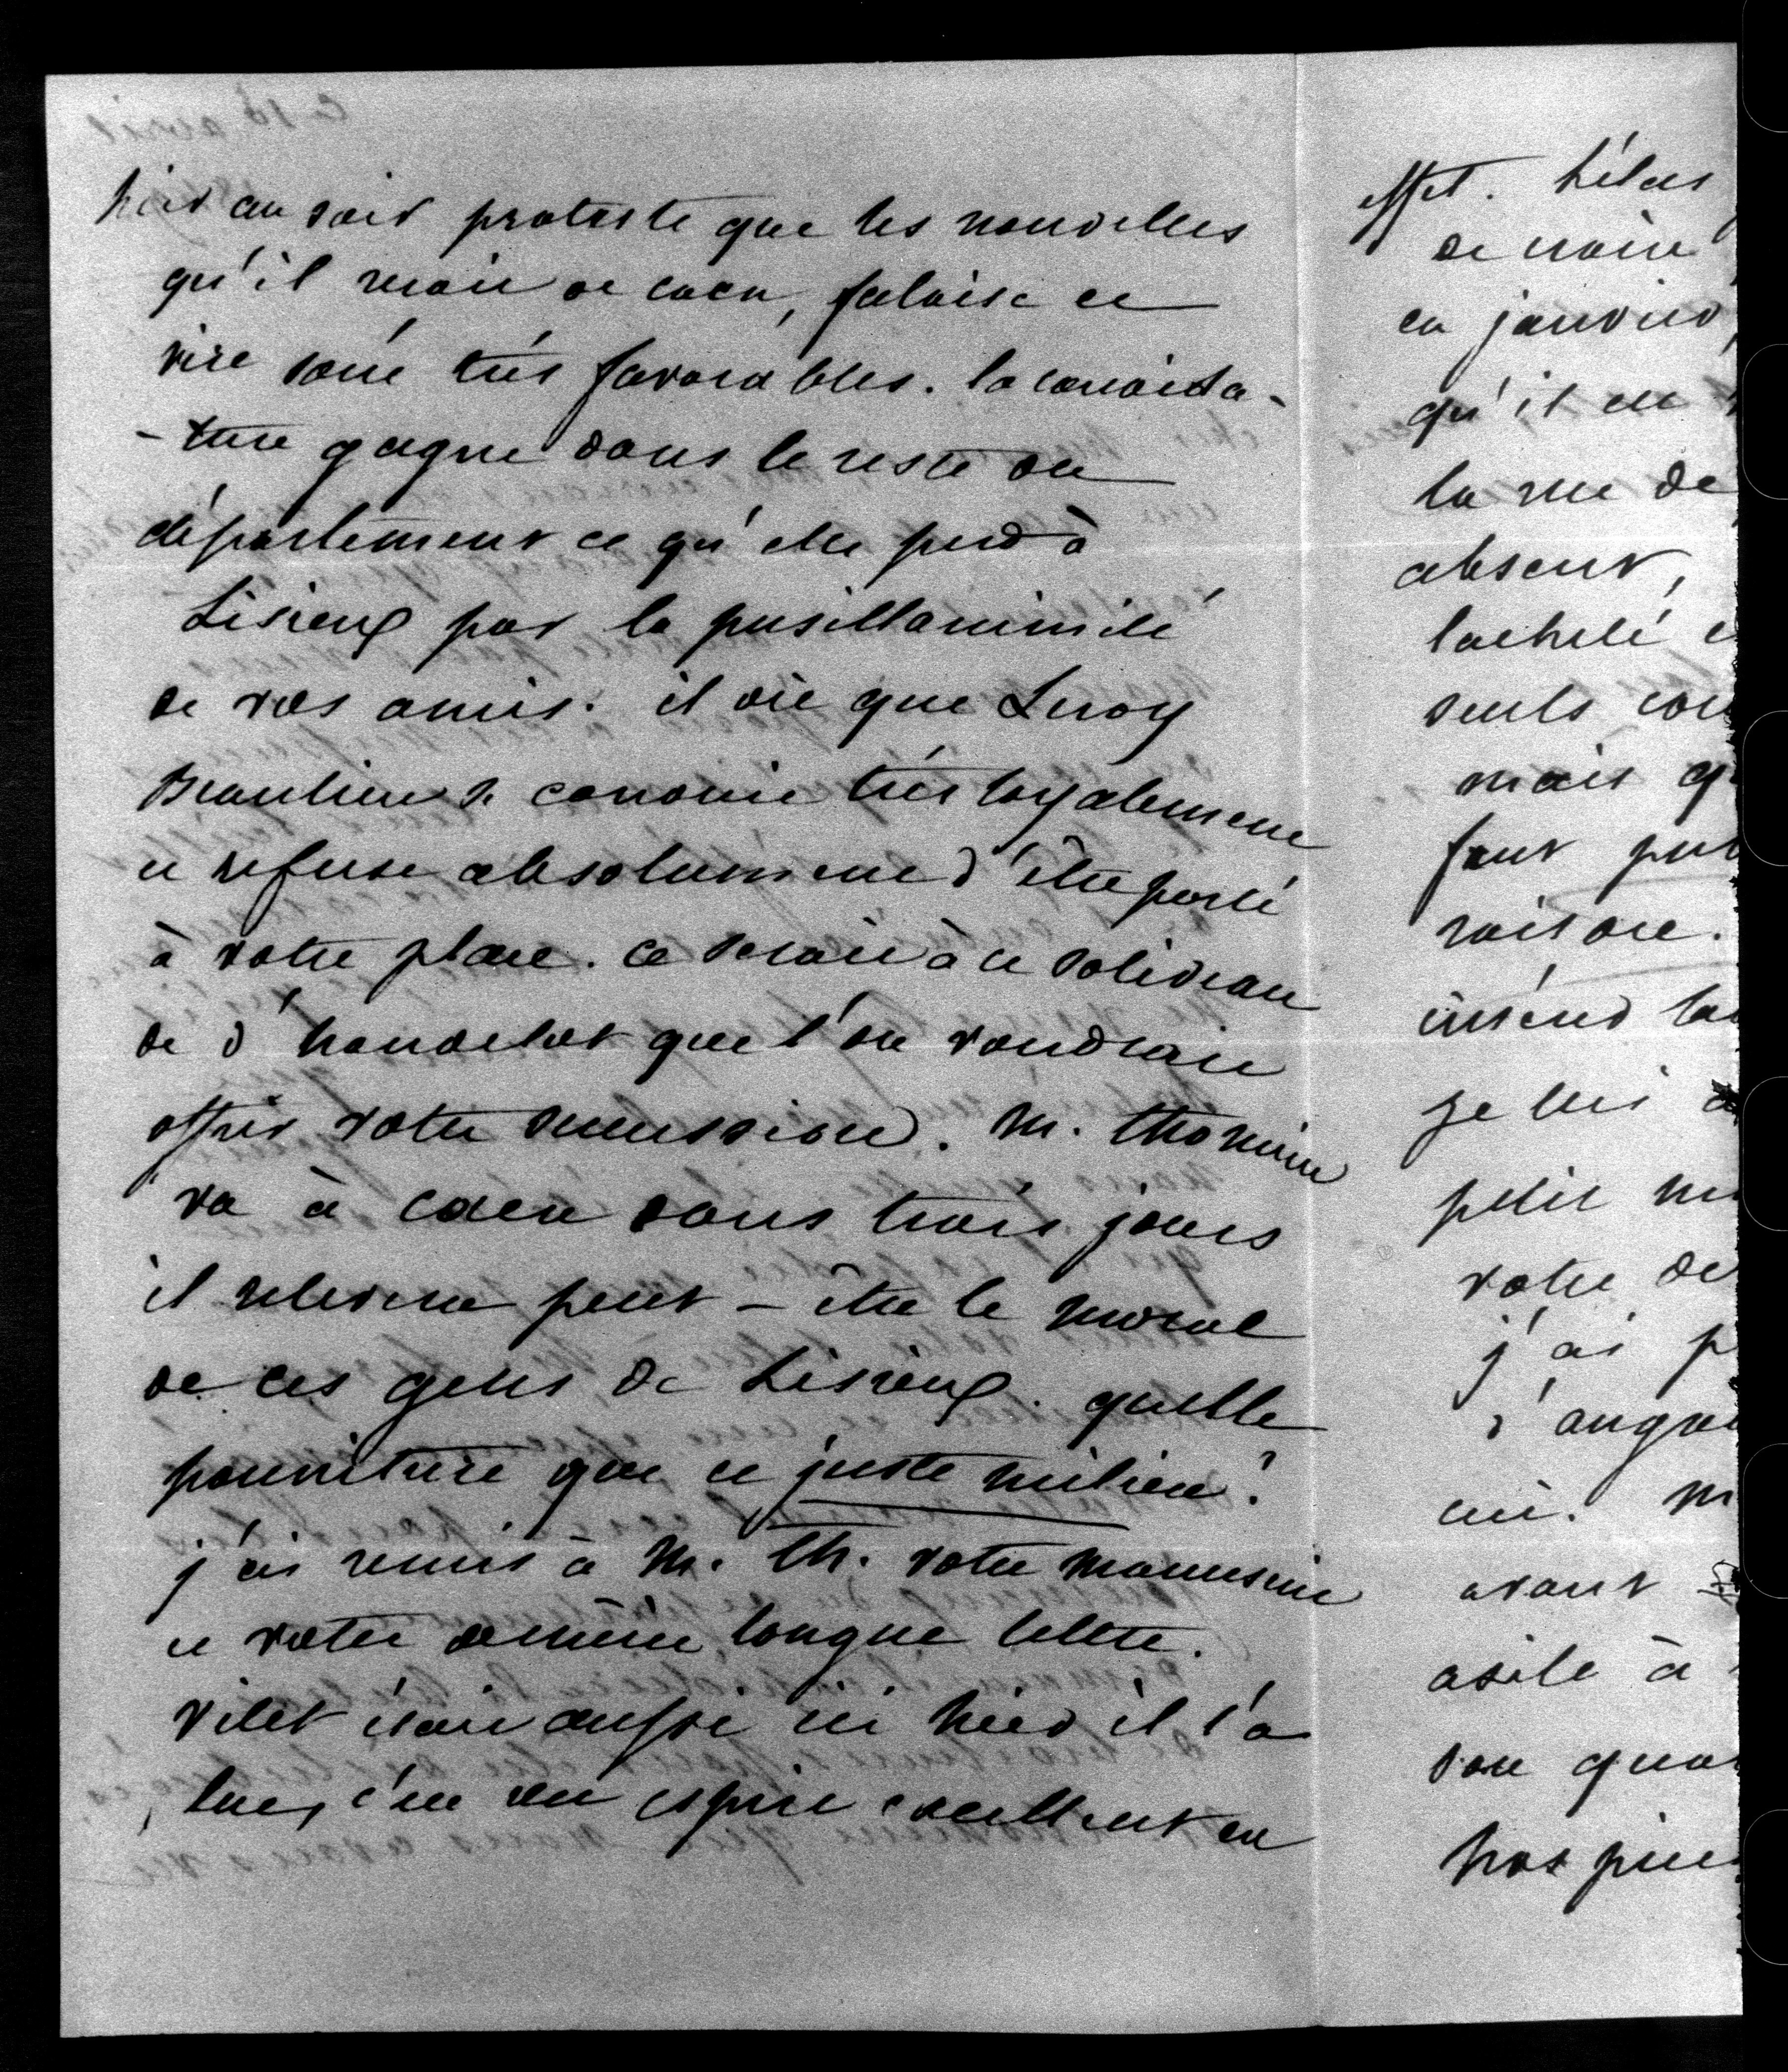 hier au soir proteste que les nouvelles
qu'il reçoit de Caen, falaise et
vire sont très favorables. la candida-
-ture gagne dans le reste du
département ce qu'elle perd à
Lisieux par la pusillanimité
de vos amis. il dit que Leroy
Beaulieu se conduit très loyalement
et refuse absolument d'être porté
à votre place. ce serait à ce soliveau
de d'houdetot que l'on voudrait
offrir votre succession. M. thomine
va à caen dans trois jours
il relevera peut-être le moral
de ces gens de Lisieux. quelle
pourriture que ce juste milieu!
j'ai remis à M. Th. votre manuscrit
et votre dernière longue lettre.
vilet était aussi ici hier il l'a
lue, c'est un esprit excellent en
effet. hélas
de
en janvier,
qu'il
la rue de
absent,
lacheté
seuls
mais
faut

je lui
petit
votre
j'ai

ici.
avant
asile à

nos